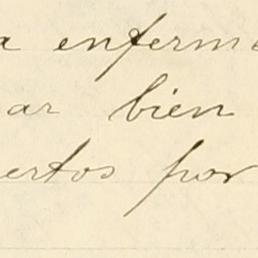 a enferme
ar bien
ertos por